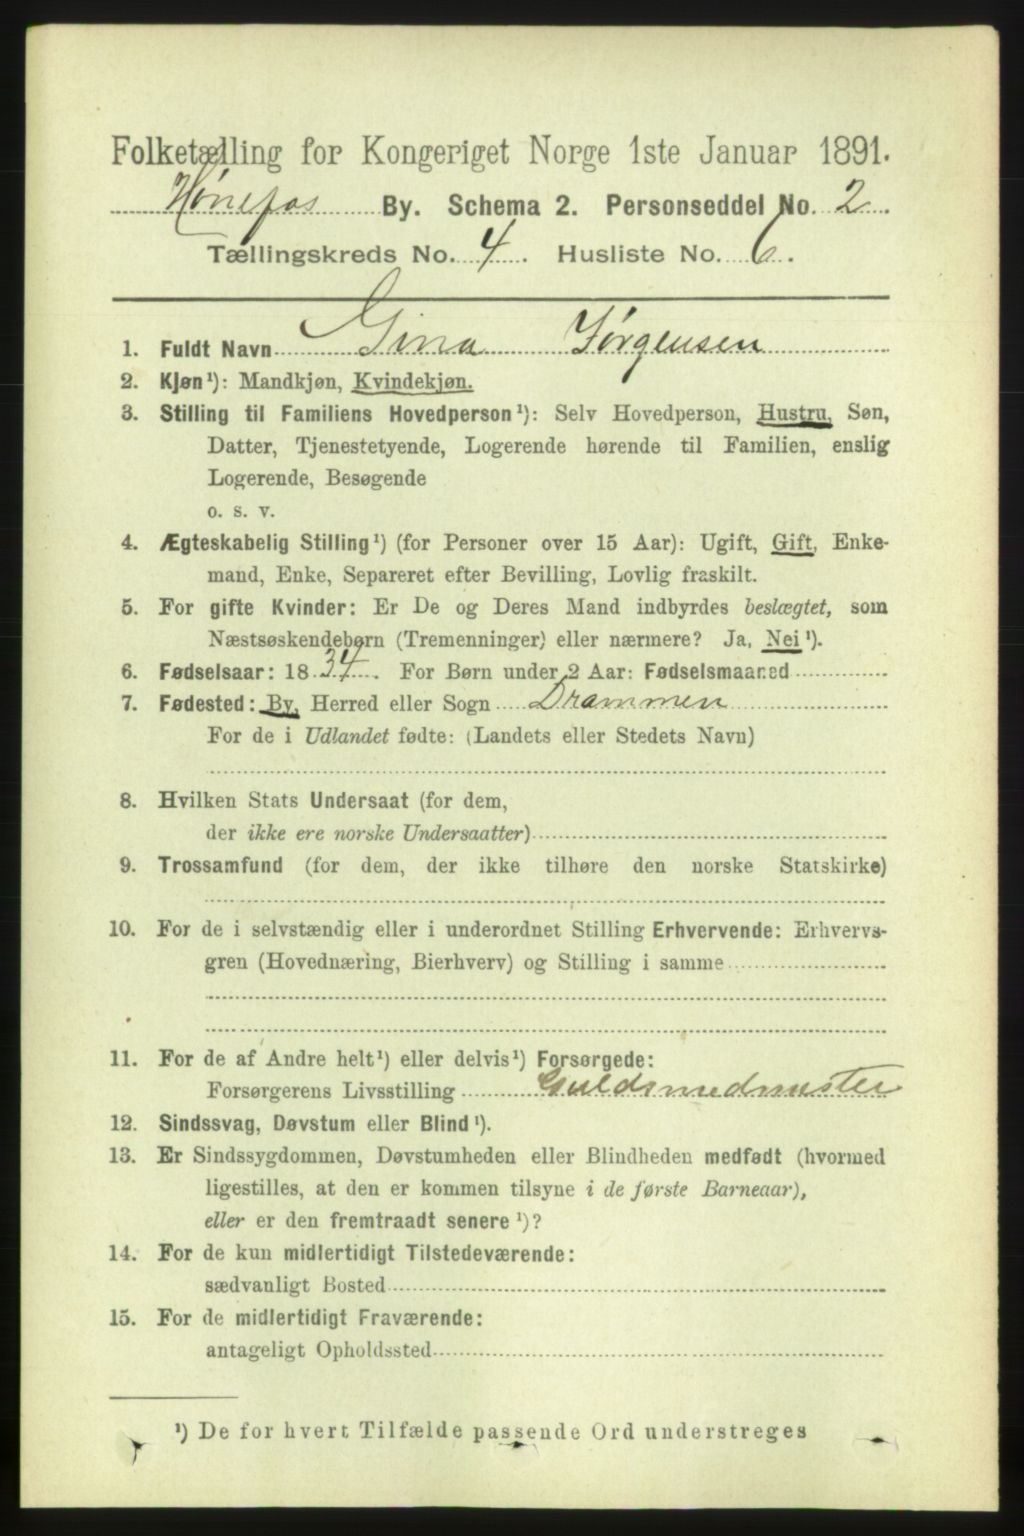 Folketælling for Kongeriget Norge 1ste Januar 1891.
Hønefos By. Schema 2. Personseddel No. 2
Tællingskreds No. 4. Husliste No. 6.
1. Fuldt Navn Gina Jørgensen
2. Kjøn¹): Mandkjøn, Kvindekjøn.
3. Stilling til Familiens Hovedperson¹): Selv Hovedperson, Hustru, Søn,
Datter, Tjenestetyende, Logerende hørende til Familien, enslig
Logerende, Besøgende
o. s. v.
4. Ægteskabelig Stilling¹) (for Personer over 15 Aar): Ugift, Gift, Enke-
mand, Enke, Separeret efter Bevilling, Lovlig fraskilt.
5. For gifte Kvinder: Er De og Deres Mand indbyrdes beslægtet, som
Næstsøskendebørn (Tremenninger) eller nærmere? Ja, Nei¹).
6. Fødselsaar: 1834. For Børn under 2 Aar: Fødselsmaaned
7. Fødested: By, Herred eller Sogn Drammen
For de i Udlandet fødte: (Landets eller Stedets Navn)
8. Hvilken Stats Undersaat (for dem,
der ikke ere norske Undersaatter)
9. Trossamfund (for dem, der ikke tilhøre den norske Statskirke)
10. For de i selvstændig eller i underordnet Stilling Erhvervende: Erhvervs-
gren (Hovednæring, Bierhverv) og Stilling i samme
11. For de af Andre helt¹) eller delvis¹) Forsørgede:
Forsørgerens Livsstilling Guldsmedmester
12. Sindssvag, Døvstum eller Blind¹).
13. Er Sindssygdommen, Døvstumheden eller Blindheden medfødt (hvormed
ligestilles, at den er kommen tilsyne i de første Barneaar),
eller er den fremtraadt senere¹)?
14. For de kun midlertidigt Tilstedeværende:
sædvanligt Bosted
15. For de midlertidigt Fraværende:
antageligt Opholdssted
¹) De for hvert Tilfælde passende Ord understreges